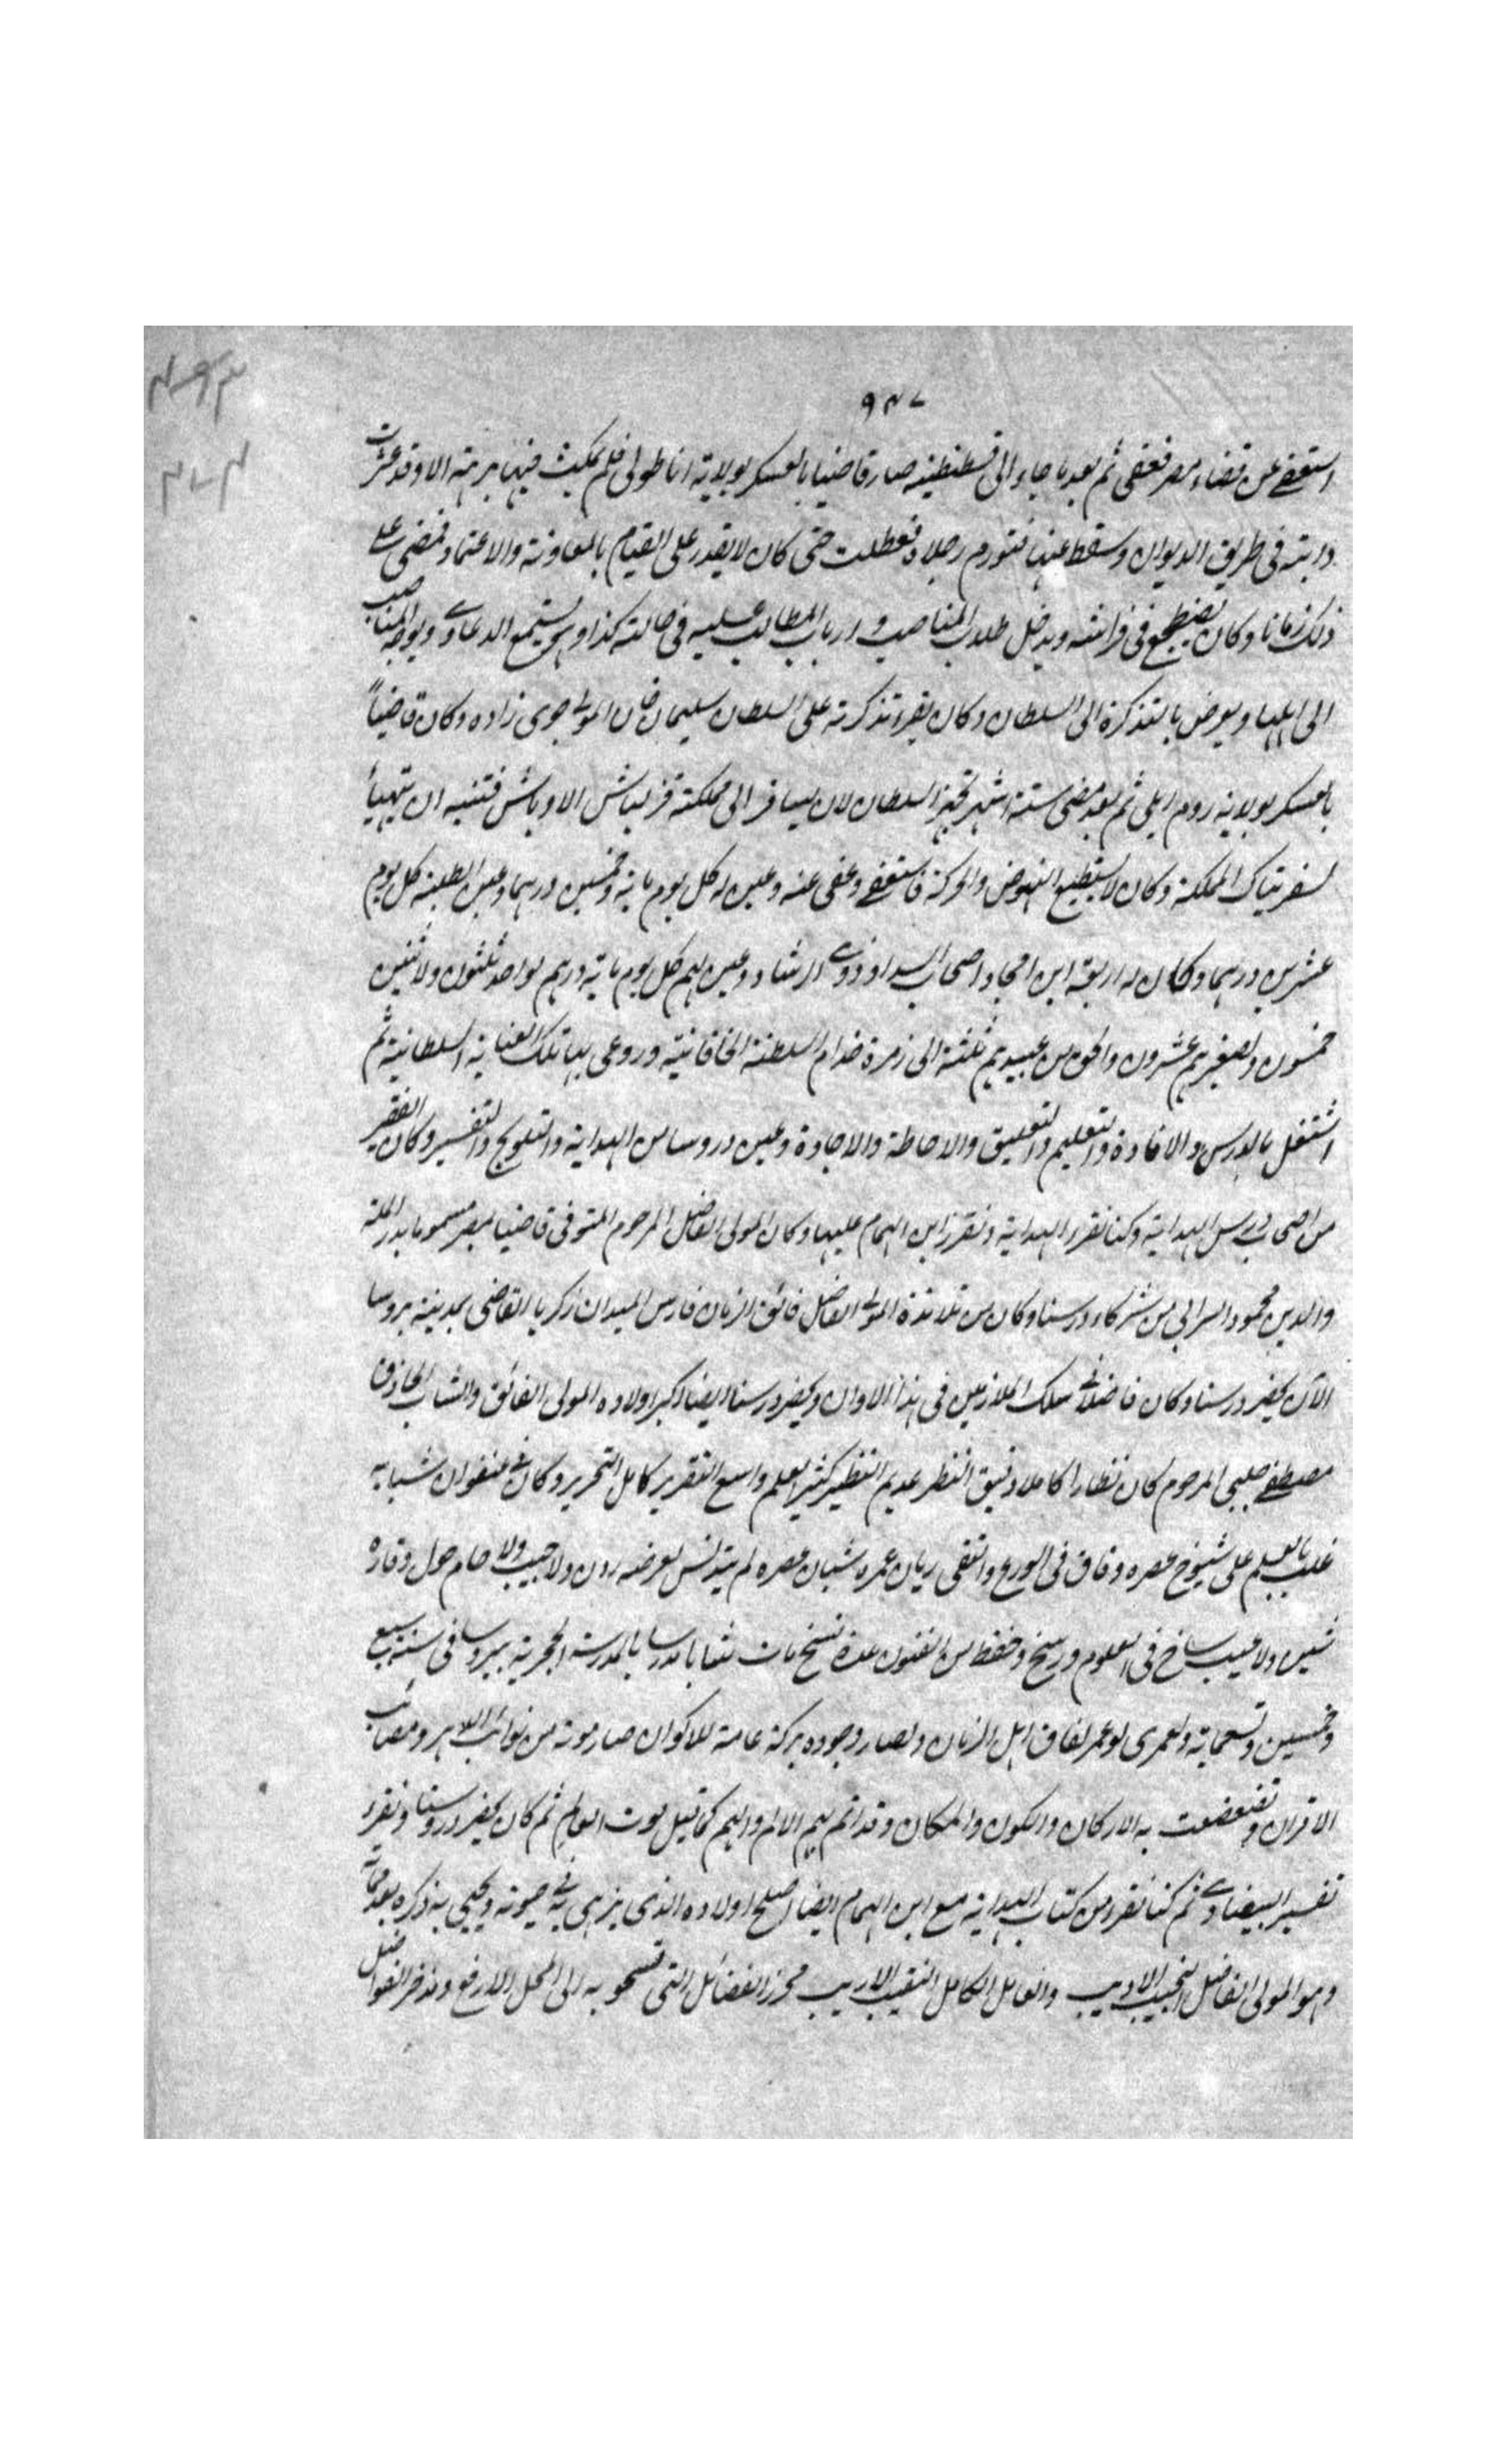 ٩٤٧
استعفى عن قضاء مصر فعفى ثم بعد ما جاء الى قسطنطينيه صار قاضيا بالعسكر بولاية اناطولى فلم يمكث فيها برهة الا وقد عثرت
دابته فى طريق الديوان وسقط عنها فتورم رجلاه فعطلت حتى كان لا يقدر على القيام بالمعاونة والاعتماد فمضى على
ذلك زمانا وكان يضطجع فى فراشه ويدخل طلاب المناصب وارباب المطالب عليه فى حالته كذا وهو يستمع الدعاوى ويوجه المناصب
الى اهلها ويعرض بالتذكرة الى السلطان وكان يقرء تذكرته على السلطان سليمان خان المولى جوى زاده وكان قاضياً
بالعسكر بولاية روم ايلى ثم بعد مضى ستة اشهر تجهز السلطان لان يسافر الى مملكة قزلباش الاوباش فتنبه ان يتهيأ
لسفر تيك المملكة وكان لا يستطيع النهوض والحركة فاستعفى وعفى عنه وعين له كل يوم ماية وخمسين درهما وعين لطلبته كل يوم
عشرين درهما وكان له اربعة ابن امجاد اصحاب السداد وذوى الرشاد وعين لهم كل يوم ماية درهم لواحد ثلثون ولاثنين
خمسون ولصغيرهم عشرون والحق من عبيدهم ثلثة الى زمرة خدام السلطنة الخاقانية وروعى بها تلك العناية السلطانية ثم
اشتغل بالدرس والافادة والتعليم والتعليق والاحاطة والاجادة وعين دروسا من الهداية والتلويح والتفسير وكان الفقير
من اصحاب درس الهداية وكنا نقرء الهداية ونقرر ابن الهمام عليها وكان المولى الفاضل المرحوم المتوفى قاضيا بمصر مسموما بدر الملة
والدين محمود السرابى من شركاء درسنا وكان من تلامذة المولى الفاضل فائق الزمان فارس الميدان زكريا القاضى بمدينة بروسا
الآن يحضر درسنا وكان فاضلا فى سلك الملازمين فى هذا الاوان ويحضر درسنا ايضا اكبر اولاده المولى الفائق والشاب الحاذق
مصطفى چلبى المرحوم كان نظارا كاملا دقيق النظر عديم النظير كثير العلم واسع التقرير كامل التحرير وكان فى عنفوان شبابه
غلب بالعلم على شيوخ عصره وفاق فى الورع والتقى ريان عمره شبان عصره لم يتدنس بعرضه ردن ولا جيب ولا حام حول وقاره
شين ولا عيب ساخ فى العلوم ورسخ وحفظ من الفنون عدة نسخ مات شابا مدرسا بالمدرسة الحجرية ببروسا فى سنة سبع
وخمسين وتسعماية ولعمرى لو عمر لفاق اهل الزمان ولصار وجوده بركة عامة للاكوان صار موته من نوائب الدهر ومصائب
الاقران وتضعضعت به الاركان والكون والمكان وقد اتم بهم الالم والهم كما قيل موت العالم ثم كان يحضر دروسنا ونقرء
تفسير البيضاوى ثم كنا نقرء من كتاب الهداية مع ابن الهمام ايضا اصلح اولاده الذى يزهى به فى حيوته ويحيى به ذكره بعد مماته
وهو المولى الفاضل النجيب الاديب والعامل الكامل النقيب الاريب محرز الفضائل التى تسمو به الى المحل الارفع ومذخر الفواضل